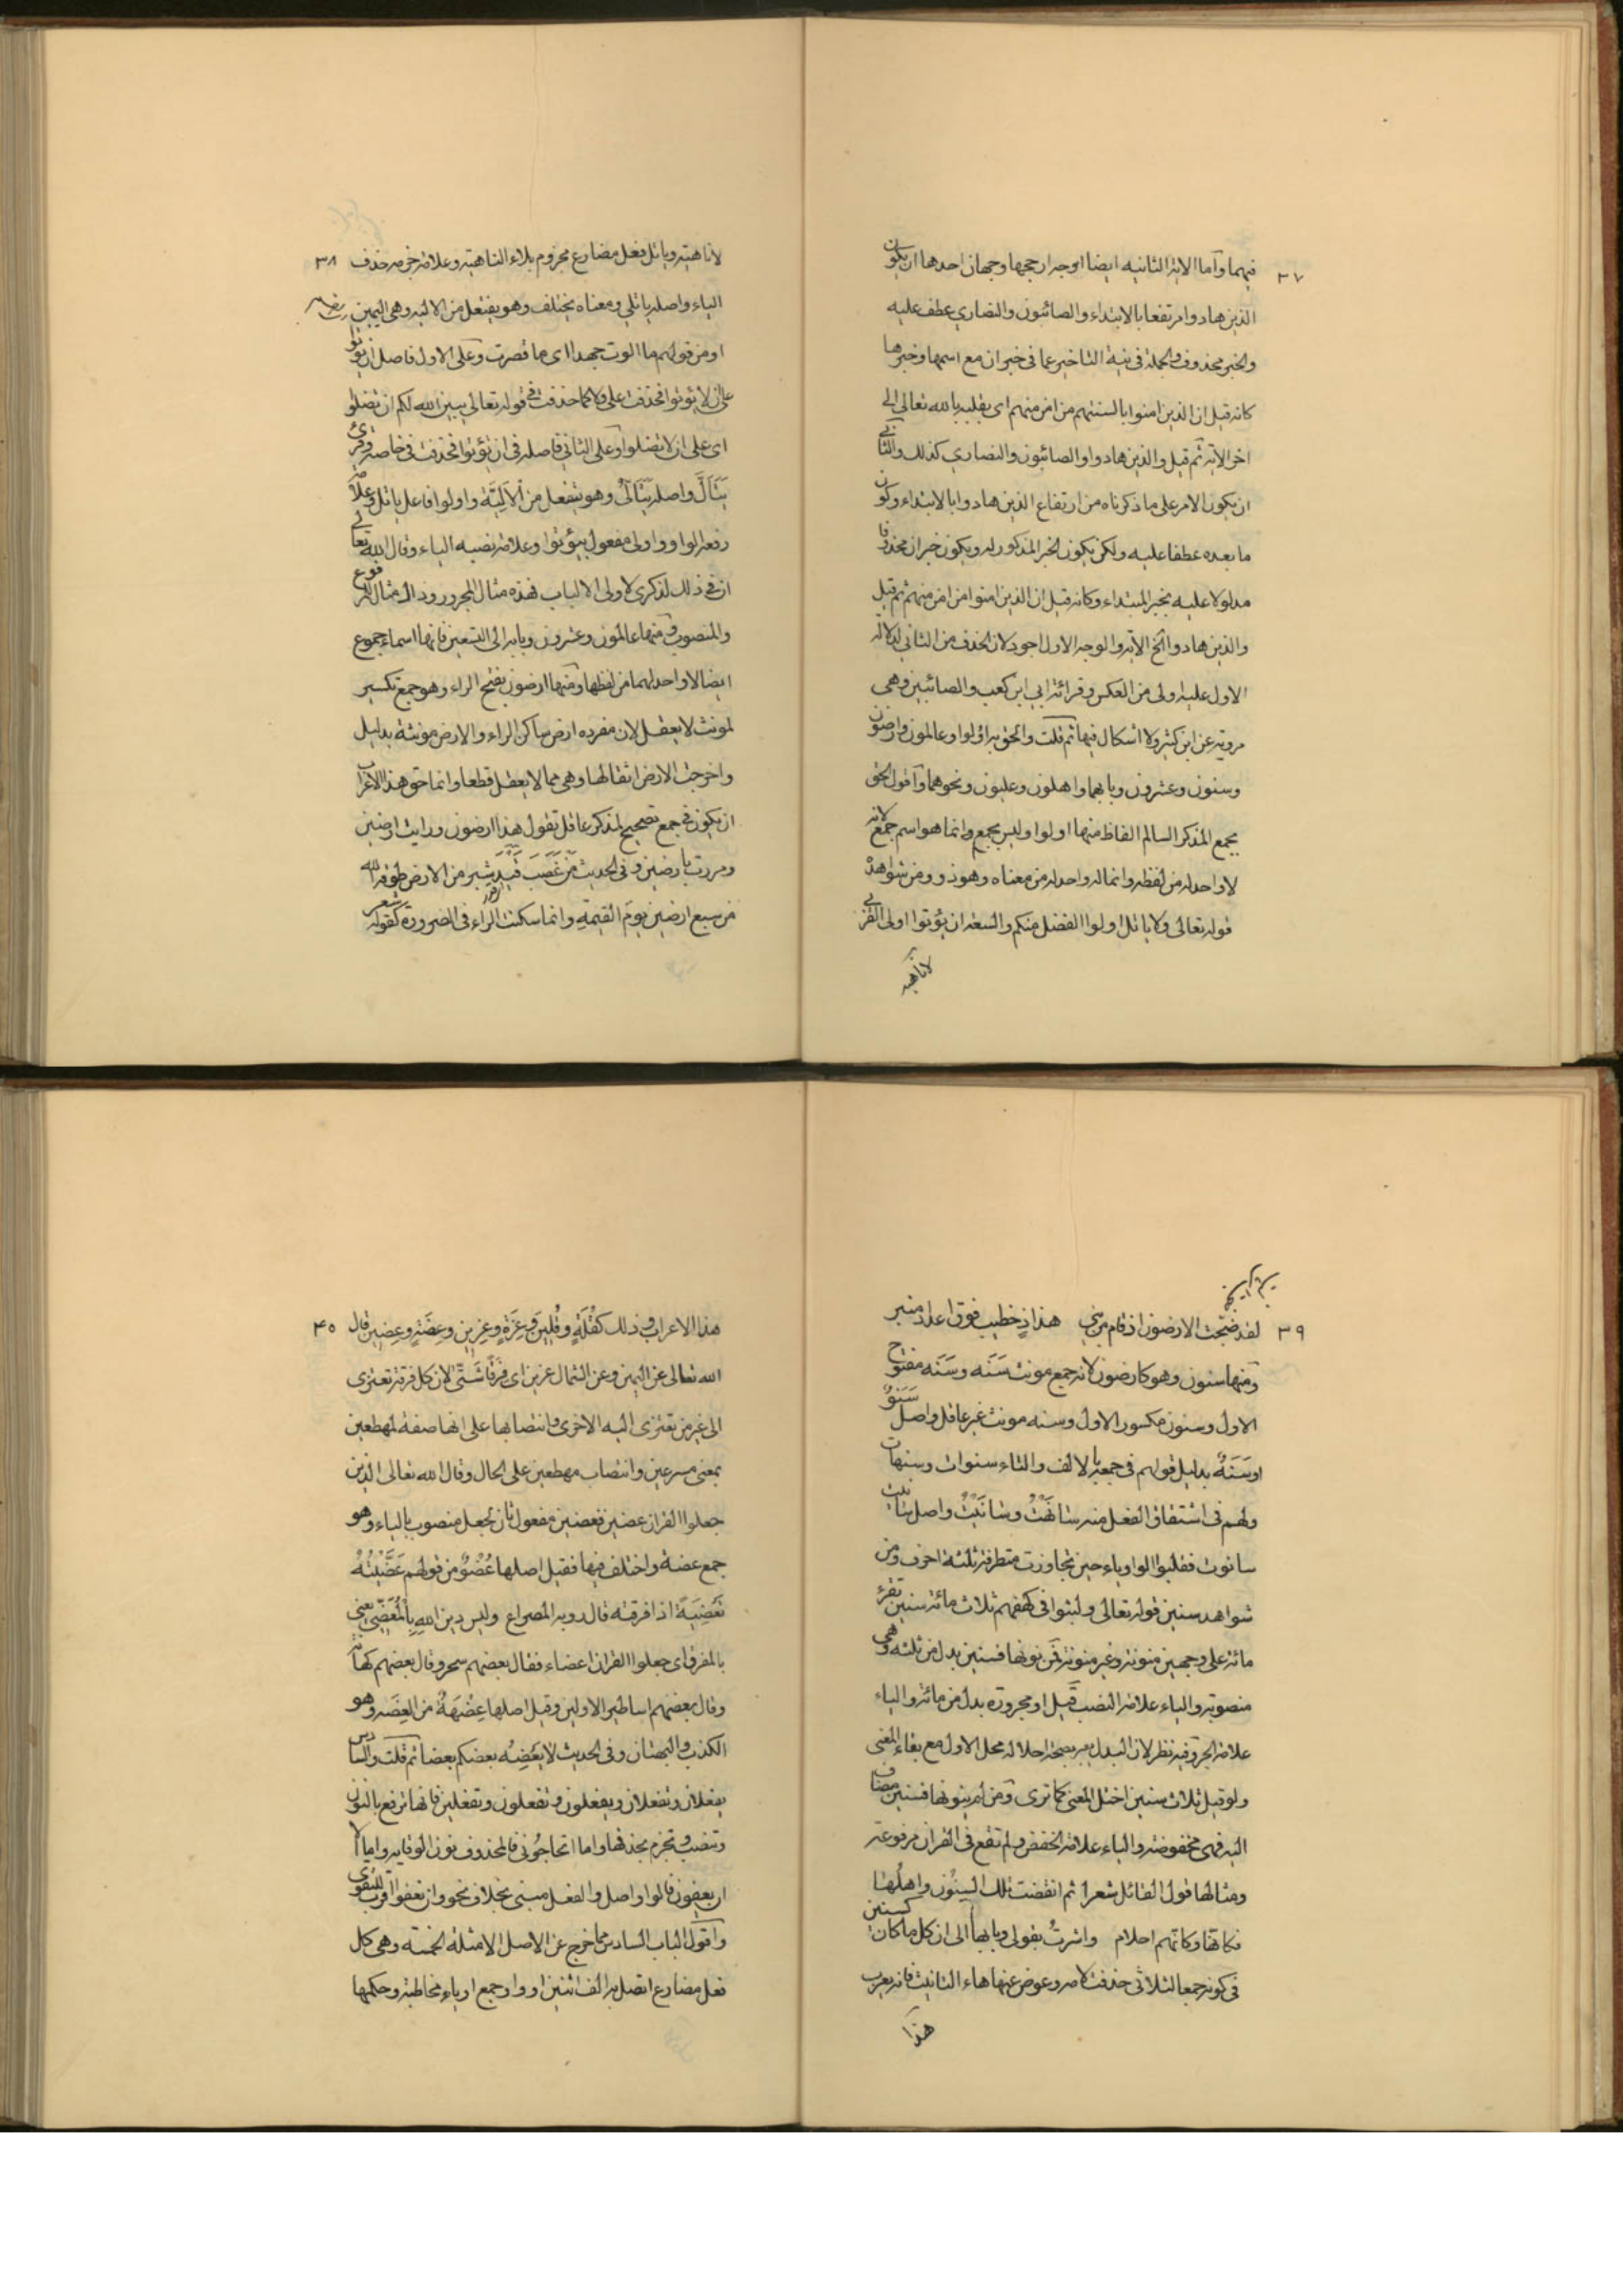 ٣٧
فيهما وأما الاية الثانيه ايضا اوجه ارجحها وجهان احدها ان يكون
الذين هادوا مرتفعا بالابتداء والصائبون والنصاري عطف عليه
والخبر محذوف والجملة في نية التاخير عما في خبر ان مع اسمها وخبرها
كانه قيل ان الذين امنوا بالسنتهم من امن منهم اى بقلبه بالله تعالى الى
اخر الاية ثم قيل والذين هادوا والصائبون والنصارى كذلك والثانى
ان يكون الامر على ما ذكرناه من ارتفاع الذين هادوا بالابتداء وكون
ما بعده عطفا عليه ولكن يكون الخبر المذكور له ويكون خبر ان محذوفا
مدلولا عليه بخبر المبتداء وكانه قيل ان الذين امنوا من امن منهم ثم قيل
والذين هادوا الخ الاية والوجه الاول اجود لان الحذف من الثاني لدلالة
الاول عليه اولى من العكس وقرائة ابي ابن كعب والصائبين وهى
مروية عن ابن كثير ولا اشكال فيها ثم قلت والحق به اولوا وعالمون وارضون
وسنون وعشرون وبابهما واهلون وعليون ونحوهما وأقول الحق
بجمع المذكر السالم الفاظ منها اولوا وليس بجمع وانما هو اسم جمع لانه
لا واحد له من لفظه وانما له واحد له من معناه وهو ذو ومن شواهده
قوله تعالى ولا ياتل اولوا الفضل منكم والسعة ان يؤتوا اولى القربى
لاناهية
٣٨
لاناهية وياتل فعل مضارع مجزوم بلاء الناهية وعلامة جزمه حذف
الياء واصله ياتلي ومعناه يختلف وهو يفتعل من الالية وهى اليمين
او من قولهم ما الوت جهدا اى ما قصرت وعلى الاول فاصل ان يؤتوا
على ان لا يؤتوا فحذفت على ولا كما حذفت في قوله تعالى يبين الله لكم ان تضلوا
اى على ان لا تضلوا وعلى الثاني فاصله في ان يؤتوا فحذفت في خاصة وقرئ
يَتَألَّ واصله يَتَألّى وهو يتفعل من الاَلِيَّة واولوا فاعل ياتل وعلامة
رفعه الواو واولى مفعول يؤتوا وعلامة نصبه الياء وقال الله تعالى
ان في ذلك لذكرى لاولى الالباب فهذه مثال المجرور وذالك مثال المرفوع
والمنصوب ومنها عالمون وعشرون وبابه الى التسعين فانها اسماء جموع
ايضا لا واحد لهما من لفظها ومنها ارضون بفتح الراء وهو جمع تكسير
لمونث لا يعقل لان مفرده ارض ساكن الراء والارض مونثة بدليل
واخرجت الارض اثقالها وهى مما لا يعقل قطعا وانما حق هذا الاعراب
ان يكون في جمع تصحيح لمذكر عاقل تقول هذه ارضون ورايت ارضين
ومررت بارضين وفى الحديث مَن غَصَبَ قَيْدَ شبر من الارض طوقه الله
من سبع ارضين يوم القيمة وانما سكنت الراء في الضرورة كقوله شعر
٣٩
لقد ضجت الارضون اذ قام من بنى هداد خطيب فوق اعواد منبر
ومنها سنون وهو كارضون لانه جمع مونث سَنَه وسَنَه مفتوح
الاول وسنون مكسور الاول وسنه مونث غير عاقل واصله سَنَوٌ
او سَنَهٌ بدليل قولهم في جمعه بالالف والتاء سنوات وسنهات
ولهم في اشتقاق الفعل منه سَانَهْتُ وسَانَيْتُ واصل سانيت
سانوت فقلبوا الواو ياء حين تجاوزت متطرفة ثلثة احرف ومن
شواهد سنين قوله تعالى ولبثوا في كهفهم ثلاث مائة سنين تقرء
مائة على وجهين منونة وغير منونة فمن نونها فسنين بدل من ثلثه وهى
منصوبة والياء علامة النصب قيل او مجرورة بدل من مائة والياء
علامة الجر وفيه نظر لان البدل يعتبر بصحة احلاله محل الاول مع بقاء المعنى
ولو قيل ثلاث سنين اختل المعنى كما ترى ومن لم ينونها فسنين مضاف
اليه فهى مخفوضة والياء علامة الخفض ولم تقع في القران مرفوعة
ومثالها قول القائل شعرا ثم انقضت تلك السِنُون واهلُها
فكانها وكانهم احلام واشرتُ بقولى وبابها الى ان كل ما كان كسنين
في كونه جمعا لثلاثى حذفت لامه وعوض عنها هاء التانيث فانه يعرب
هذا
٤٠
هذا الاعراب وذلك كقُلَةٍ وقُلِين وعِزَةٍ وعِزِين وعِضَةٍ وعِضِين قال
الله تعالى عن اليمين وعن الشمال عزين اى فِرَقًا شَتّى لان كل فرقة تعتزى
الى غير من تعتزى اليه الاخرى وانتصابها على انها صفة لمهطعين
بمعنى مسرعين وانتصاب مهطعين على الحال وقال الله تعالى الذين
جعلوا القران عضين فعضين مفعول ثان لجعل منصوب بالياء وهو
جمع عضة واختلف فيها فقيل اصلها عُضْوٌ من قولهم عَضَّيْتُهُ
تَعْضِيَةً اذا فرقته قال روبه المصراع وليس دين الله بِالْمُعَضّى يعنى
بالمفرق اى جعلوا القران اعضاء فقال بعضهم سحر وقال بعضهم كهانة
وقال بعضهم اساطير الاولين وقيل اصلها عِضْهَةٌ من العِضَه وهو
الكذب والبهتان وفى الحديث لا يَعْضِه بعضكم بعضا ثم قلت والسادس
يفعلان وتفعلان ويفعلون وتفعلون وتفعلين فانها ترفع بالنون
وتنصب وتجزم بحذفها واما اتحاجُونى فالمحذوف نون الوقاية واما الا
ان يعفون فالواو اصل والفعل مبنى بخلاف نحو وان تعفوا اقرب للتقوى
واقول الباب السادس مما خرج عن الاصل الامثلة الخمسة وهى كل
فعل مضارع اتصل به الف اثنين او واو جمع او ياء مخاطبة وحكمها